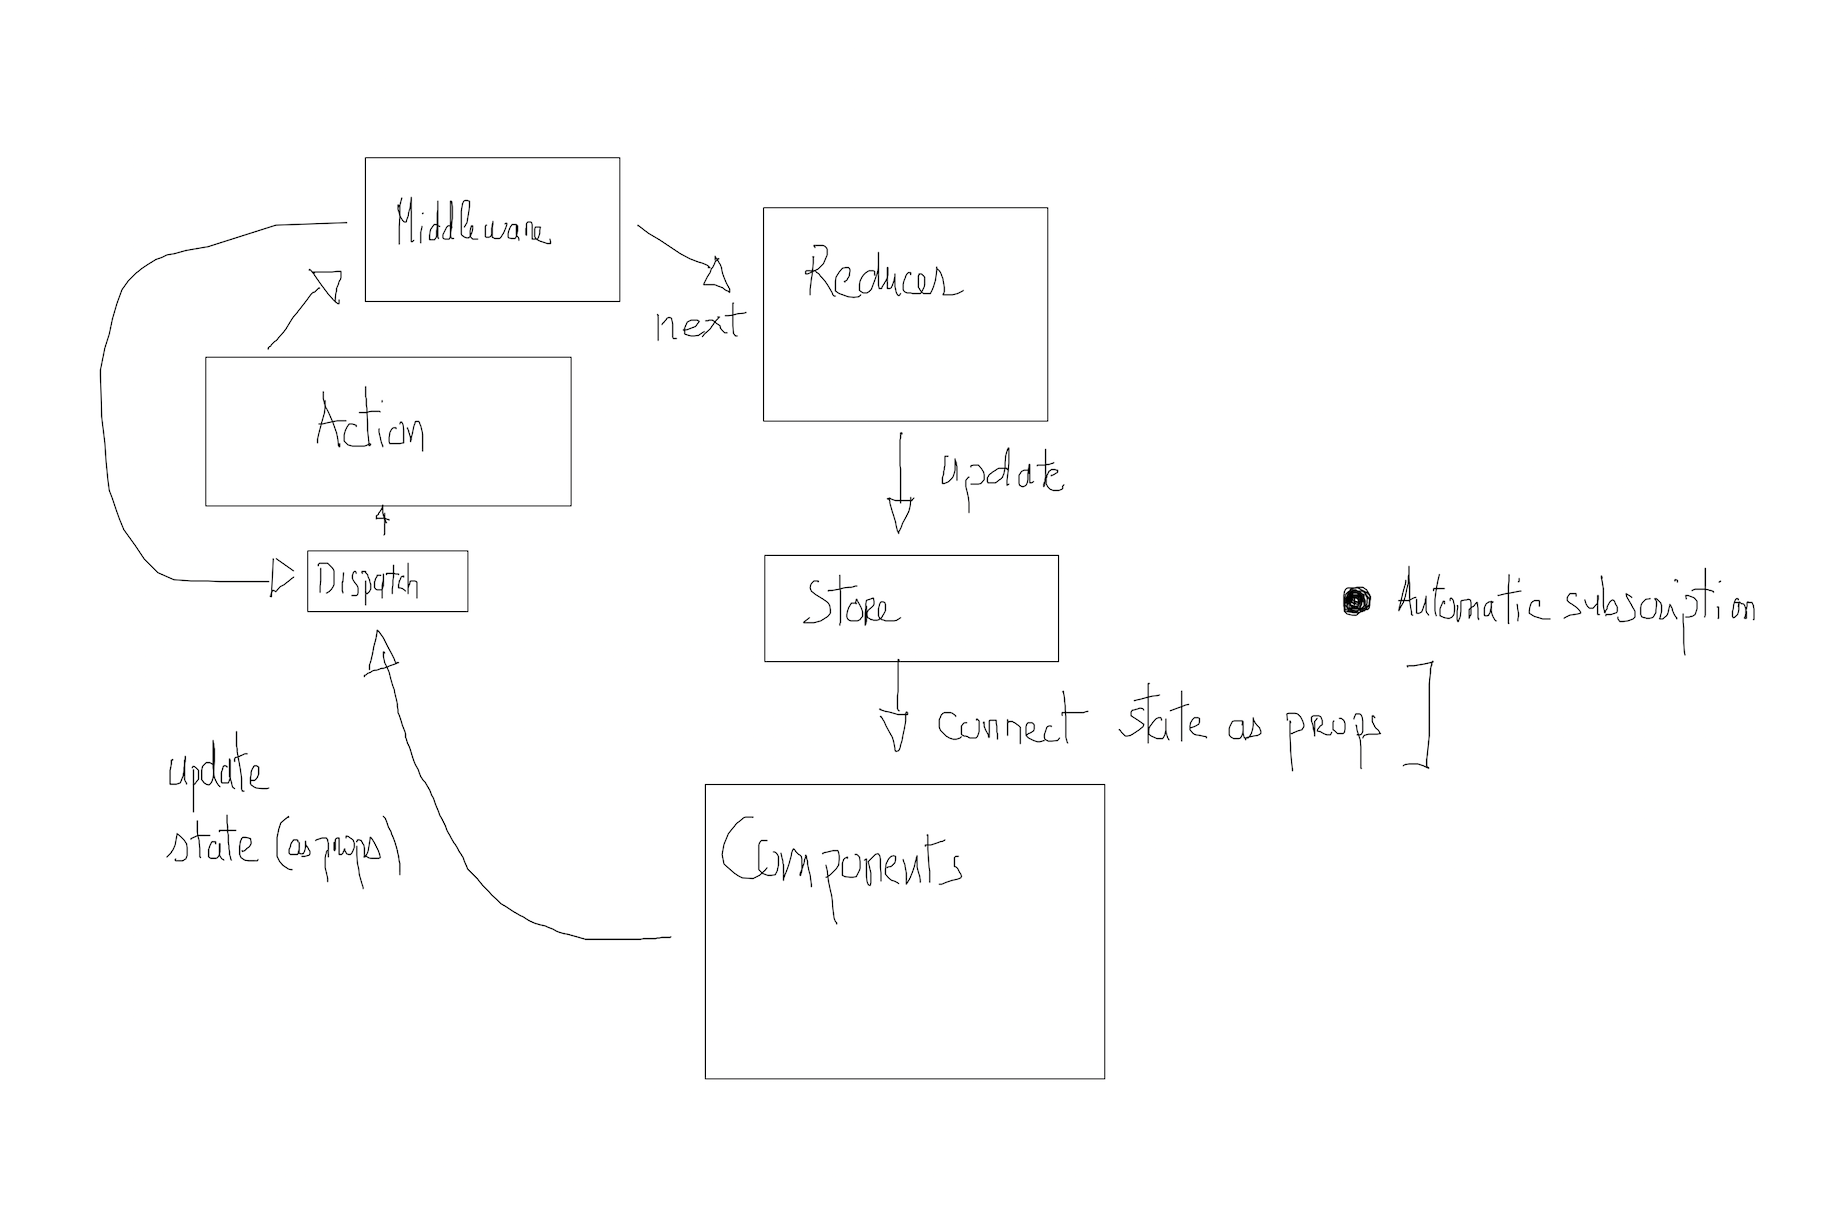 Middleware
Reducer
next
Action
update
Dispatch
Store
Automatic subscription
connect state as props ]
update
state (as props)
Components